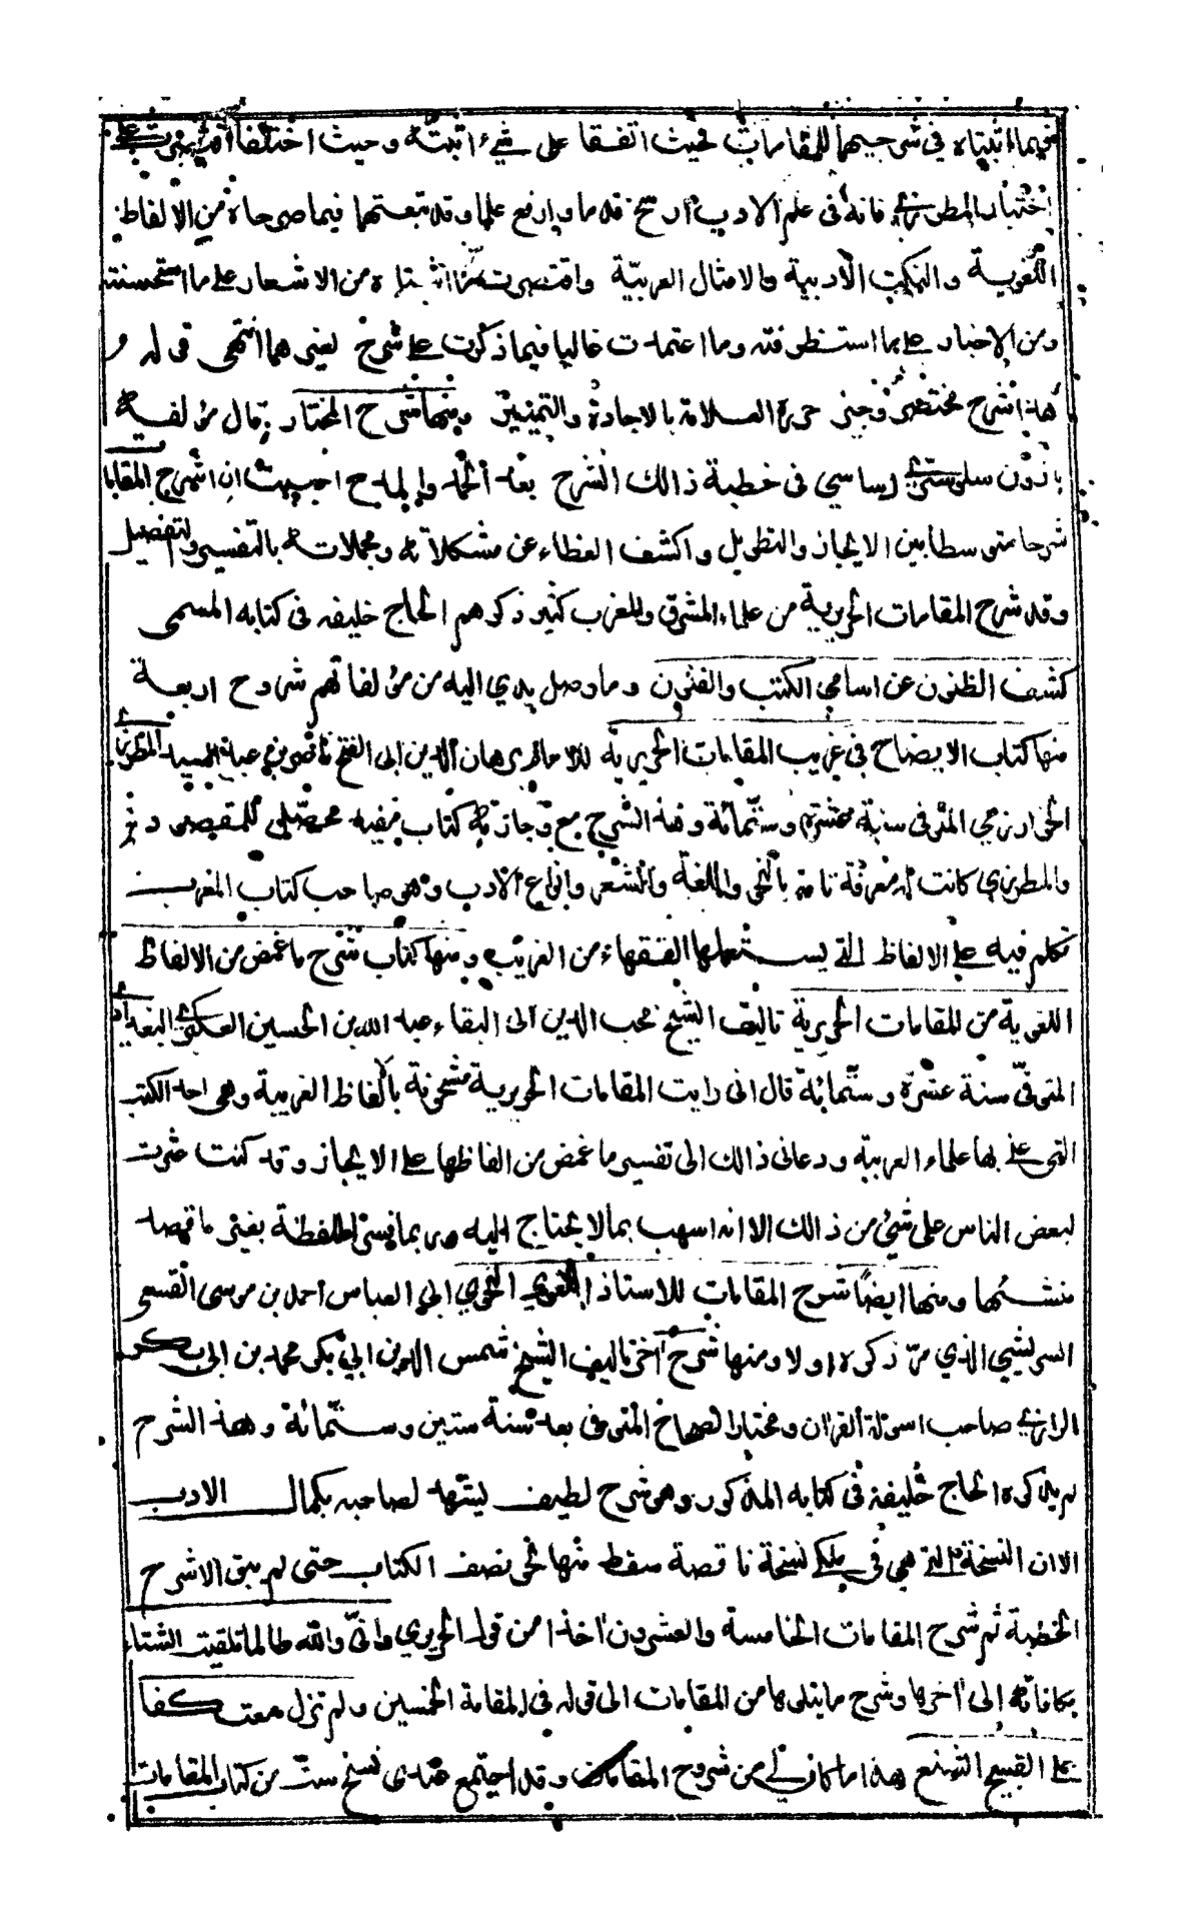 فيما اثبتاه في شرحيهما للمقامات فحيث اتفقا على شيء اثبتّه وحيث اختلفا
اختيار المطرزي فانه في علم الادب ارسخ قدما وارفع علما وقد تبعتهما فيما صرحاه من الالفاظ
اللغوية والنكت الادبية والامثال العربيّة واقتصرت ممّا اثبتاه من الاشعار على ما استحسنته
ومن الاخبار على ما استظرفته وما اعتمدت غالبا فيما ذكرت على شرح لغيرهما انتهى قوله و
هذا شرح مختصر وجيز حرره العلامة بالاجادة والتمييز ومنها شرح المختار قال مؤلفه
سلوستري دساسي في خطبة ذالك الشرح بعد الحمد والمدح احببت ان اشرح المقامات
شرحا متوسطا بين الايجاز والتطويل واكشف الغطاء عن مشكلاته ومجملاته بالتفسير والتفصيل
وقد شرح المقامات الحريرية من علماء المشرق والمغرب كثير ذكرهم الحاج خليفه في كتابه المسمى
كشف الظنون عن اسامي الكتب والفنون وما وصل يدي اليه من مؤلفاتهم شروح اربعة
منها كتاب الايضاح في غريب المقامات الحريرية للامام برهان الدين ابي الفتح ناصر بن عبد السيد المطرزي
الخوارزمي المتوفى سنة عشرة وستّمائة وهذا الشرح مع وجازته كتاب مفيد محصّل للمقصود
والمطرزي كانت له معرفة تامة بالنحو واللغة والشعر وانواع الادب وهو صاحب كتاب المغرب
تكلم فيه على الالفاظ التي يستعملها الفقهاء من الغريب ومنها كتاب شرح ما غمض من الالفاظ
اللغوية من المقامات الحريرية تاليف الشيخ محب الدين ابي البقاء عبد الله بن الحسين العكبري البغدادي
المتوفّى سنة عشرة وستّمائة قال اني رايت المقامات الحريرية مشحونة بالفاظ الغريبة وهي احد الكتب
التي عني بها علماء العربيّة ودعاني ذالك الى تفسير ما غمض من الفاظها على الايجاز وقد كنت عثرت
لبعض الناس على شيئ من ذالك الا انه اسهب بما لا يحتاج اليه وربما فسر اللفظة بغير ما قصد
منشئها ومنها ايضًا شرح المقامات للاستاذ اللغوي النحوي ابي العباس احمد بن موسى القسي
السريشي الذي مرّ ذكره اولا ومنها شرح آخر تاليف الشيخ شمس الدين ابي بكر محمد بن ابي بكر
الرازي صاحب اسولة القران ومختار الصحاح المتوفى بعد سنة ستين وستّمائة وهذا الشرح
لم يذكره الحاج خليفة في كتابه المذكور وهو شرح لطيف ليشهد لصاحبه بكمال الادب
الا ان النسخة التي هي في ملكي نسخة ناقصة سقط منها نحو نصف الكتاب حتى لم يبق الا شرح
الخطبة ثم شرح المقامات الخامسة والعشرون اخذا من قول الحريري وانّي والله طالما تلقيت الشتاء
بكافاته الى آخرها وشرح ما يتلوها من المقامات الى قوله في المقامة الخمسين ولم تزل معتكفا
على القبيح الشنيع هذا ما كان لي من شروح المقامات وقد اجتمع عندي نسخ ستّ من كتاب المقامات